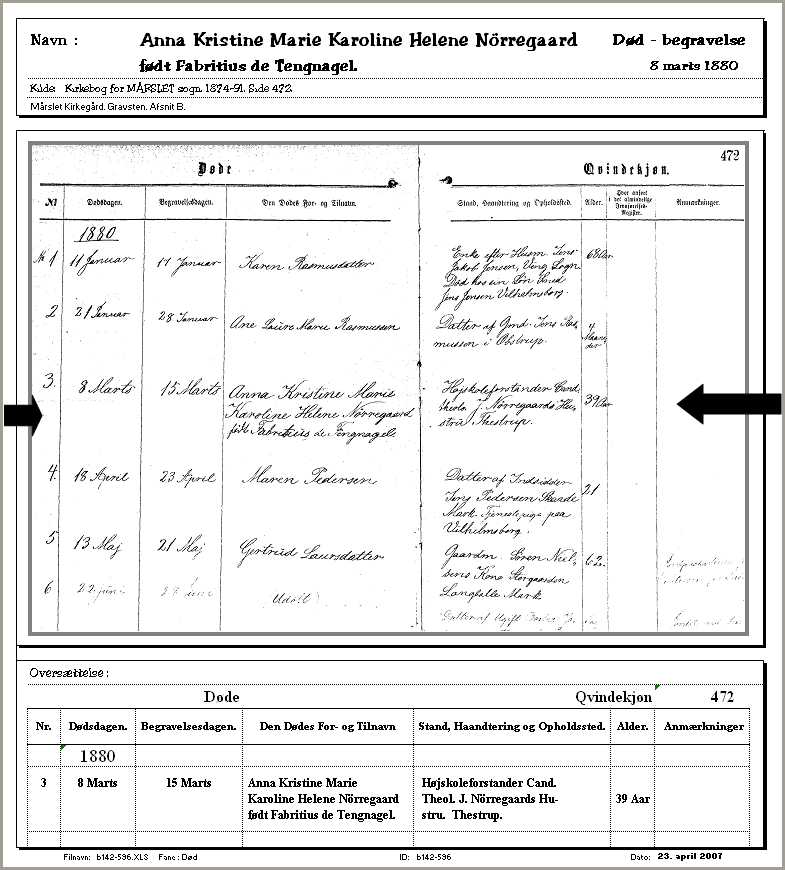 Navn : Anna Kristine Marie Karoline Helene Nörregaard Død - begravelse
født Fabritius de Tengnagel. 8 marts 1880
Kilde: Kirkebog for MÅRSLET sogn. 1874-91. Side 472.
Mårslet Kirkegård. Gravsten. Afsnit B.
472
Døde Qvindekjøn.
№ Dødsdagen. Begravelsesdagen. Den Dødes For- og Tilnavn. Stand, Haandtering og Opholdssted. Alder. Hvor anført i det almindelige Jevnførelses-Register. Anmærkninger.
1880
№ 1 11 Januar 17 Januar Karen Rasmusdatter Enke efter Husm Jens
Jakob Jensen, Sogn
Død hos sin Søn Smed
Jens Jensen Vilhelmsborg.
68 Aar
2 21 Januar 28 Januar Ane Laure Marie Rasmussen Datter af Gmd. Jens Ras-
mussen i Obstrup.
4
Maane
der
3. 8 Marts 15 Marts Anna Kristine Marie
Karoline Helene Nörregaard
født Fabritius de Tengnagel.
Højskoleforstander Cand.
theol. J. Nörregaards Hu-
stru Thestrup.
39 Aar
4. 18 April 23 April Maren Pedersen Datter af Indsidder
Jens Pedersen Skaade
Mark. Tjenestepige paa
Vilhelmsborg.
21
5 13 Maj 21 Maj Gertrud Laursdatter Gaardm. Søren Niel-
sens Kone Storgaarden
Langballe Mark
62
6 22 Juni Juni Udøbt
Datter af Ugift
Oversættelse:
Dode Qvindekjøn 472
Nr. Dødsdagen. Begravelsesdagen. Den Dødes For- og Tilnavn Stand, Haandtering og Opholdssted. Alder. Anmærkninger
1880
3 8 Marts 15 Marts Anna Kristine Marie Højskoleforstander Cand.
Karoline Helene Nörregaard Theol. J. Nörregaards Hu- 39 Aar
født Fabritius de Tengnagel. stru. Thestrup.
Filnavn: b142-596.XLS Fane: Død ID: b142-596 Dato: 23. april 2007